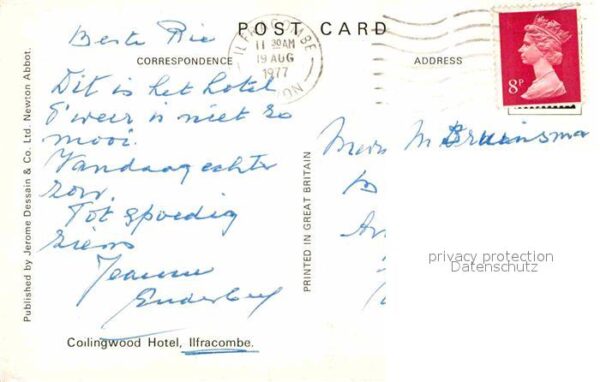 POST CARD
ILFRACOMBE
11 30 AM
19 AUG
1977
8P
CORRESPONDENCE
ADDRESS
Beste Rie
Dit is het hotel
't weer is niet zo
mooi.
Vandaag echter
zon.
Tot spoedig
ziens
Jeanne
Enderbey
Collingwood Hotel, Ilfracombe.
Published by Jerome Dessain & Co. Ltd. Newton Abbot.
PRINTED IN GREAT BRITAIN
M Bruinsma
privacy protection
Datenschutz